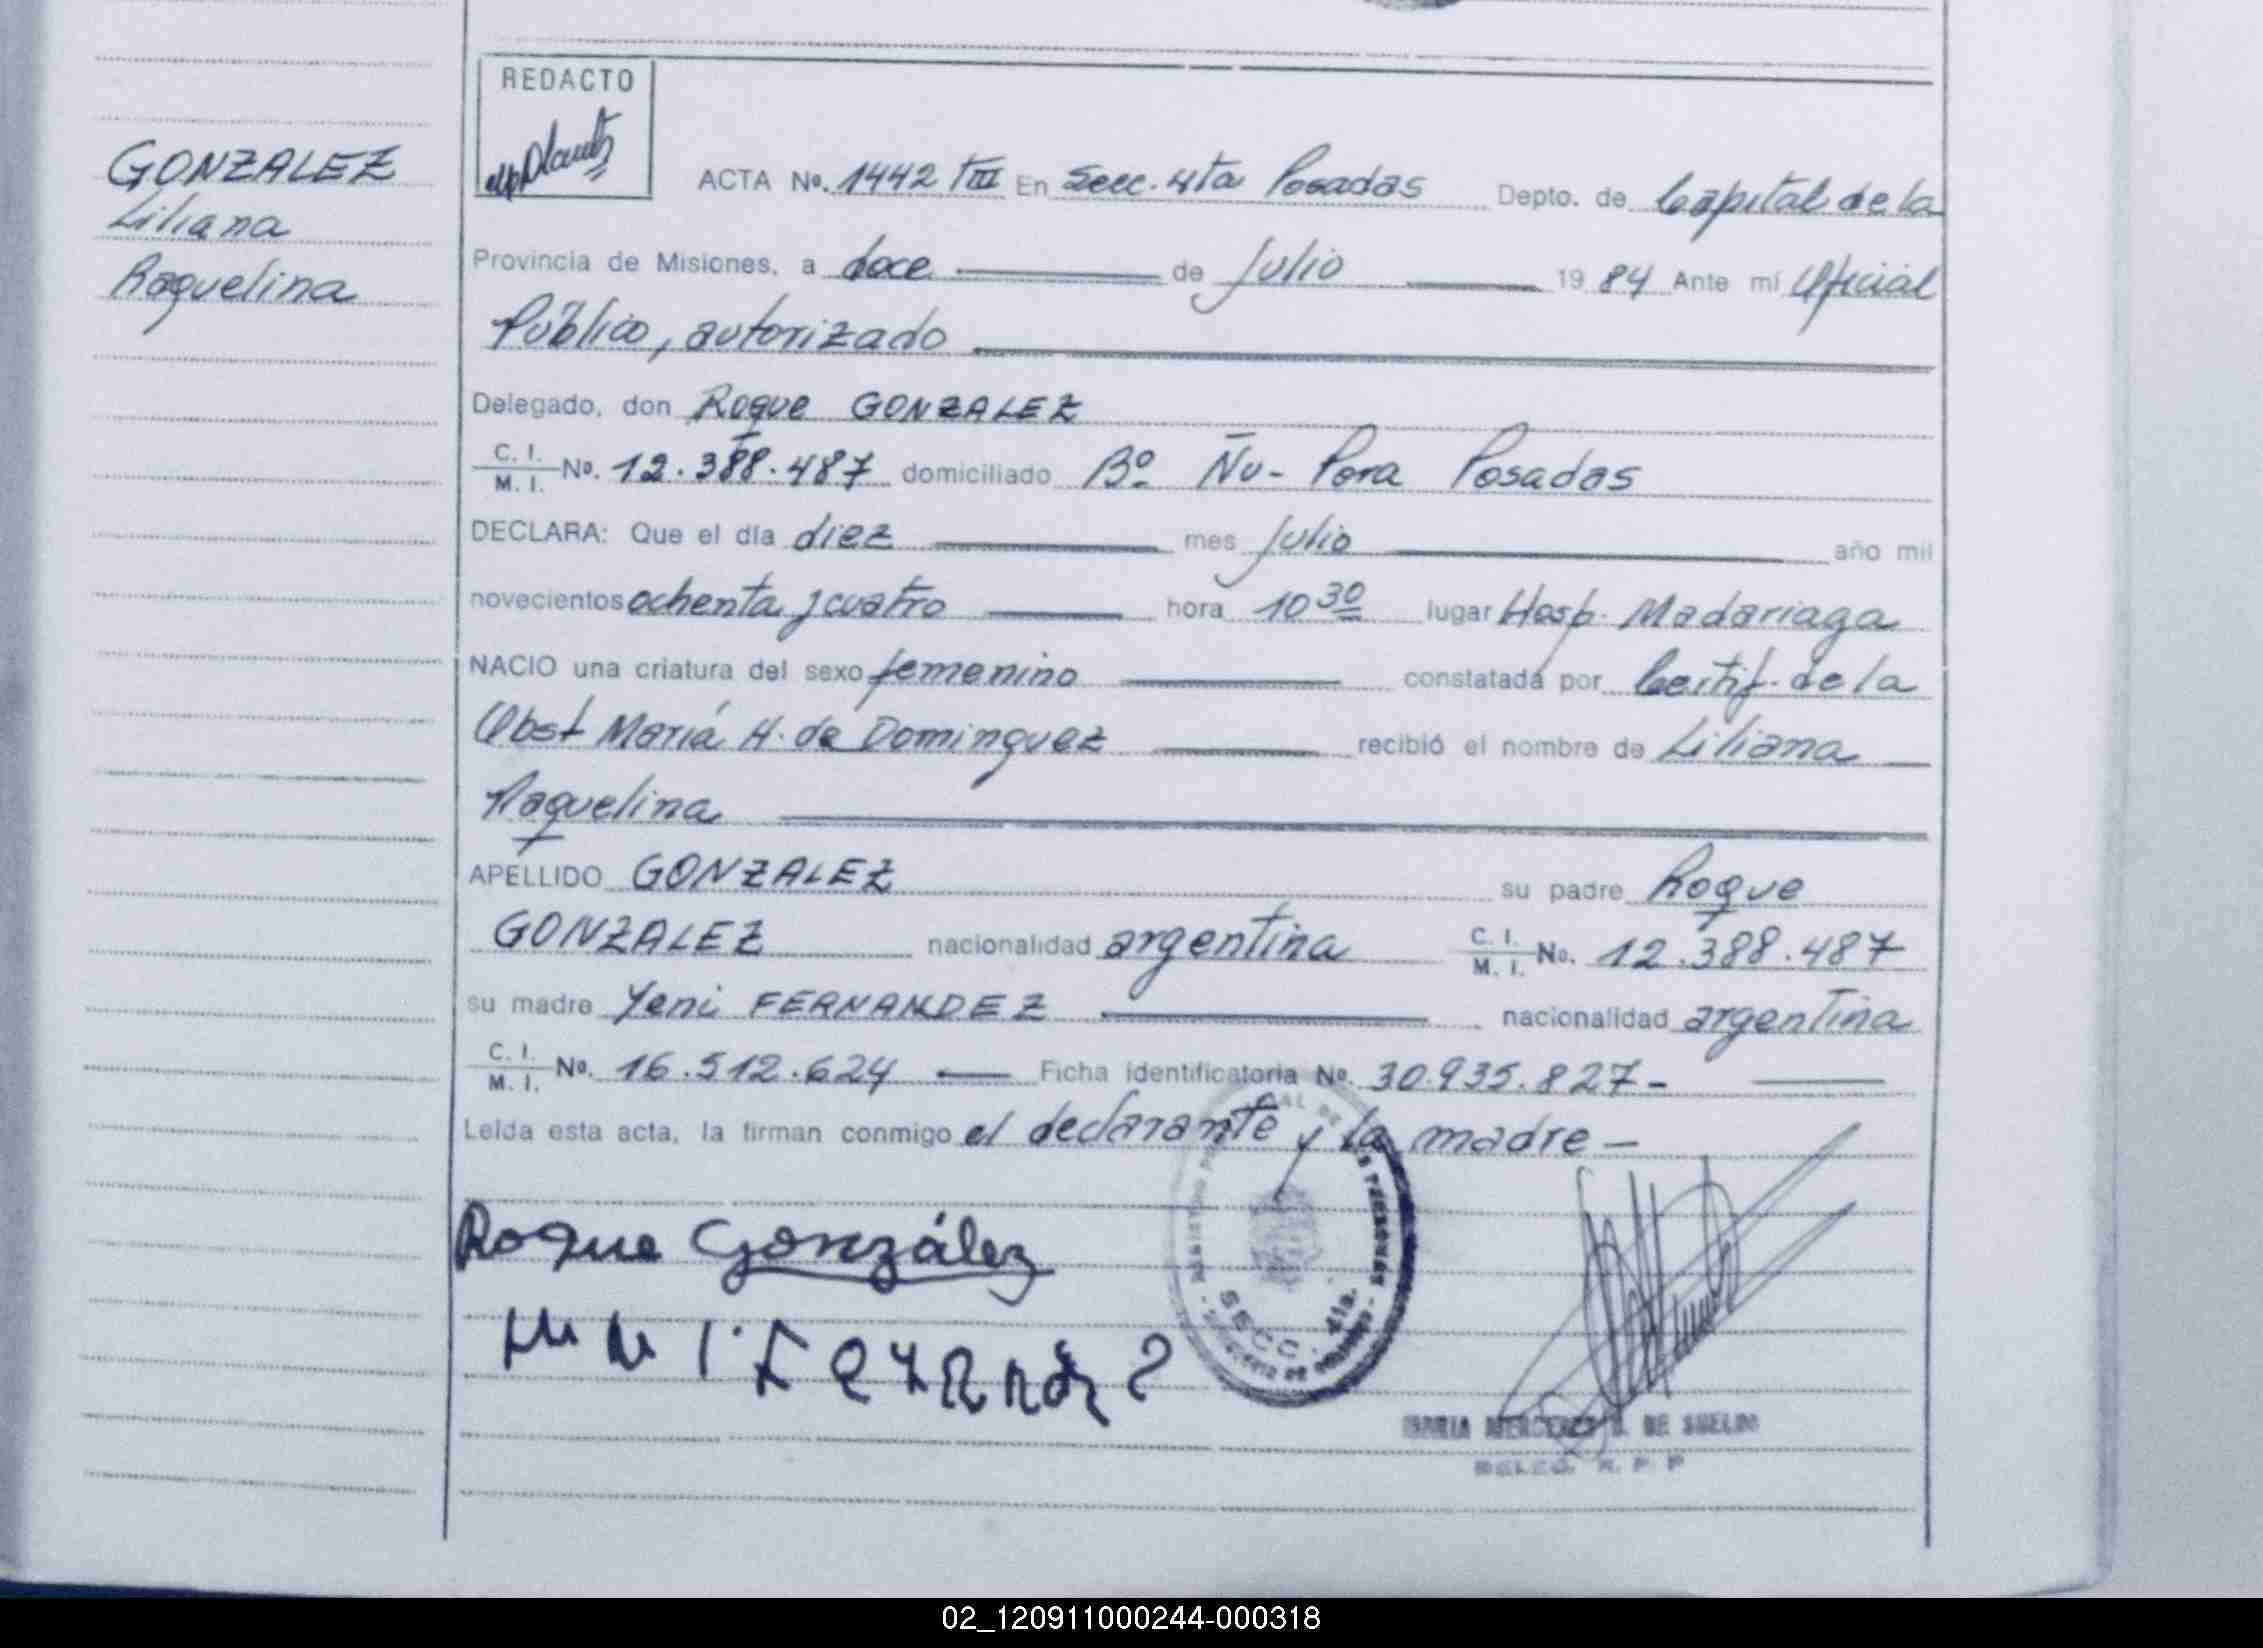 GONZALEZ
Liliana
Raquelina
REDACTO
ACTA No. 1442 TIII En Secc. 4ta Posadas Depto. de Capital de la
Provincia de Misiones, a doce de julio 1984 Ante mí Oficial
Público, autorizado
Delegado, don Roque GONZALEZ
C. I. / M. I. No. 12.388.487 domiciliado Bº Ñu-Pora Posadas
DECLARA: Que el día diez mes julio año mil
novecientos ochenta y cuatro hora 10 30 lugar Hosp. Madariaga
NACIO una criatura del sexo femenino constatada por Certif. de la
Obst María H. de Dominguez recibió el nombre de Liliana
Raquelina
APELLIDO GONZALEZ su padre Roque
GONZALEZ nacionalidad argentina C. I. / M. I. No. 12.388.487
su madre Yeni FERNANDEZ nacionalidad argentina
C. I. / M. I. No. 16.512.624 Ficha identificatoria No. 30.935.827-
Leída esta acta, la firman conmigo el declarante y la madre -
Roque González
SECC. 4ta.
MARIA MERCEDES DE
DELEG. R. P. P
02_120911000244-000318